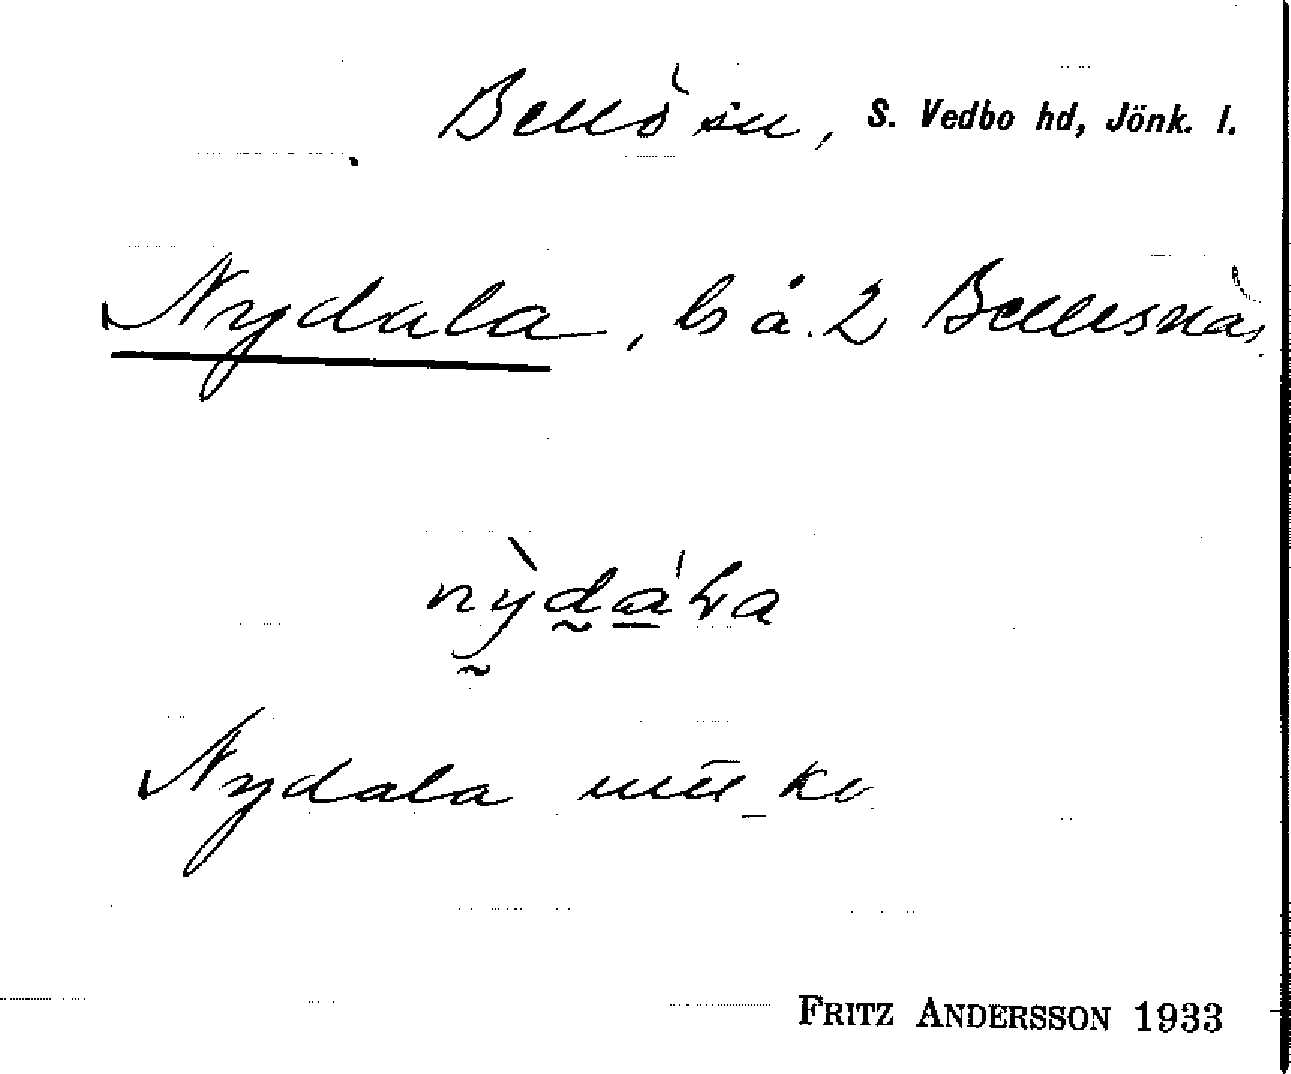 Bellö sn, S. Vedbo hd, Jönk. l.
Nydala, ls å. 2 Bellesnäs
nỳdáLa
Nydala
FRITZ ANDERSSON 1933